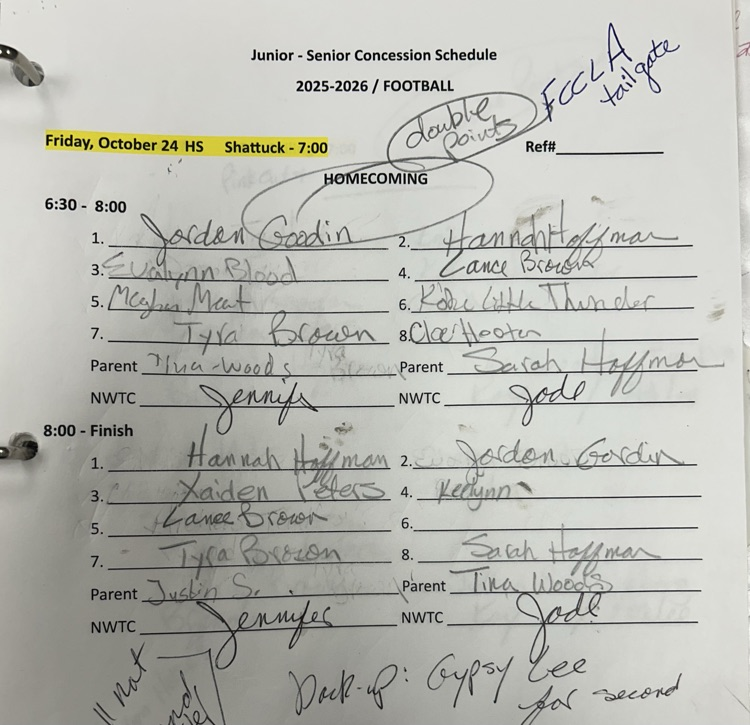 Junior - Senior Concession Schedule
2025-2026 / FOOTBALL
FCCLA
tailgate
double
points
Friday, October 24 HS Shattuck - 7:00
Ref#
HOMECOMING
6:30 - 8:00
1. Jordon Goodin 2. Hannah Hoffman
3. Evalynn Blood 4. Lance Brown
5. Meat 6. Kobe Little Thunder
7. Tyra Brown 8. Hooten
Parent Tina-Woods Tyra Brown Parent Sarah Hoffman
NWTC Jennifer NWTC Jode
8:00 - Finish
1. Hannah Hoffman 2. Jordon Gordin
3. Xaiden Peters 4. Keelynn
5. Lance Brown 6.
7. Tyra Brown 8. Sarah Hoffman
Parent Justin S. Parent Tina Woods
NWTC Jennifer NWTC Jode
Back-up: Gypsy Lee
for second